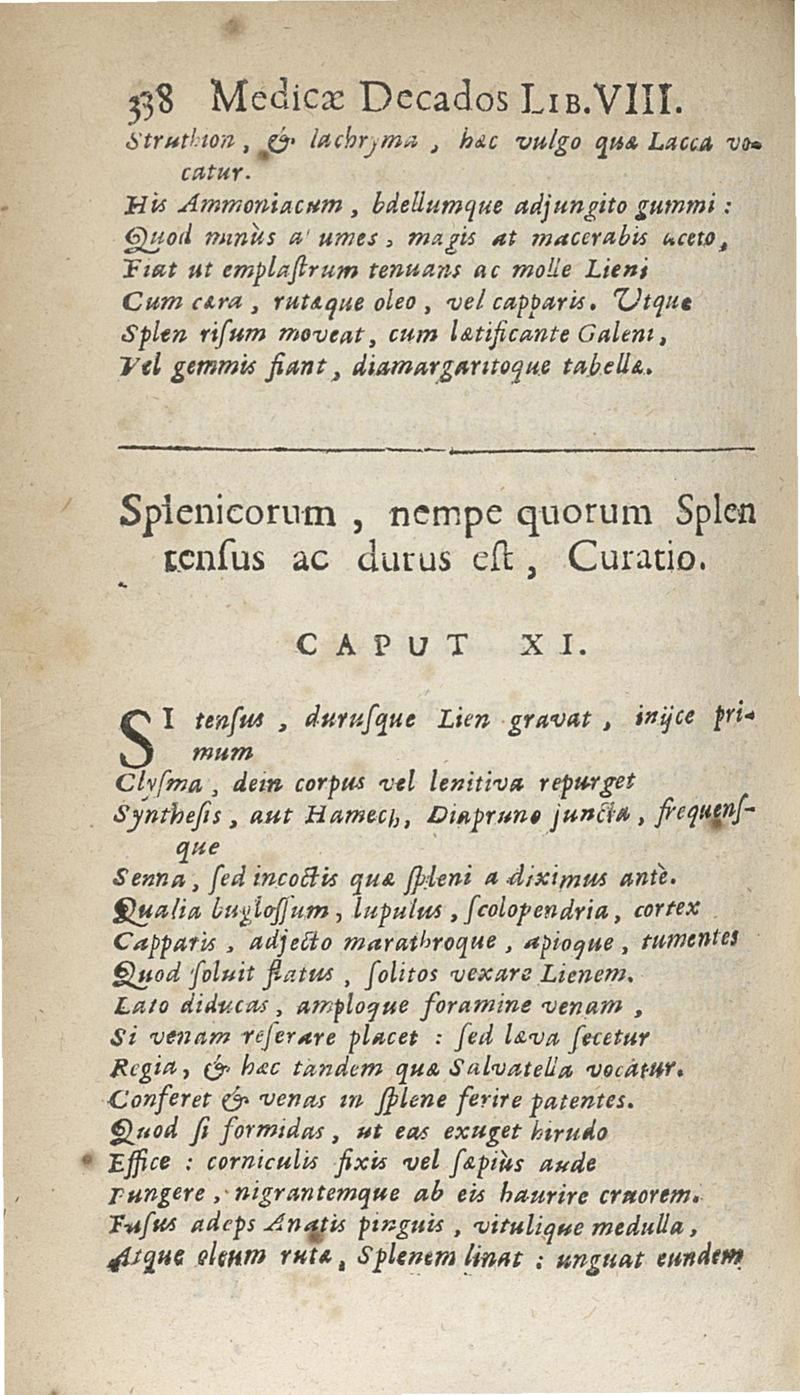 338 Medicæ Decados LIB.VIII.
Struthion, & lachryma, hæc vulgo quæ Lacca vo-
catur.
His Ammoniacum, bdellumque adjungito gummi:
Quod minùs a umes, magis at macerabis aceto,
Fiat ut emplaſtrum tenuans ac molle Lieni
Cum cæra, rutæque oleo, vel capparis. Utque
Splen riſum moveat, cum lætificante Galeni,
Vel gemmis fiant, diamargaritoque tabellæ.
Splenicorum, nempe quorum Splen
tenſus ac durus eſt, Curatio.
CAPUT XI.
SI tenſus, durusque Lien gravat, inijce pri-
mum
Clyſma, dein corpus vel lenitiva repurget
Syntheſis, aut Hamech, Diapruno juncta, frequenſ-
que
Senna, ſed incoctis quæ ſpleni a diximus antè.
Qualia bugloſſum, lupulus, ſcolopendria, cortex
Capparis, adjecto marathroque, apioque, tumentes
Quod ſoluit flatus, ſolitos vexare Lienem.
Lato diducas, amploque foramine venam,
Si venam reſerare placet: ſed læva ſecetur
Regia, & hæc tandem quæ Salvatella vocatur.
Conferet & venas in ſplene ferire patentes.
Quod ſi formidas, ut eas exuget hirudo
Effice: corniculis fixis vel ſæpiùs aude
Pungere, nigrantemque ab eis haurire cruorem.
Fuſus adeps Anatis pinguis, vitulique medulla,
Atque oleum rutæ, Splenem linat: unguat eundem